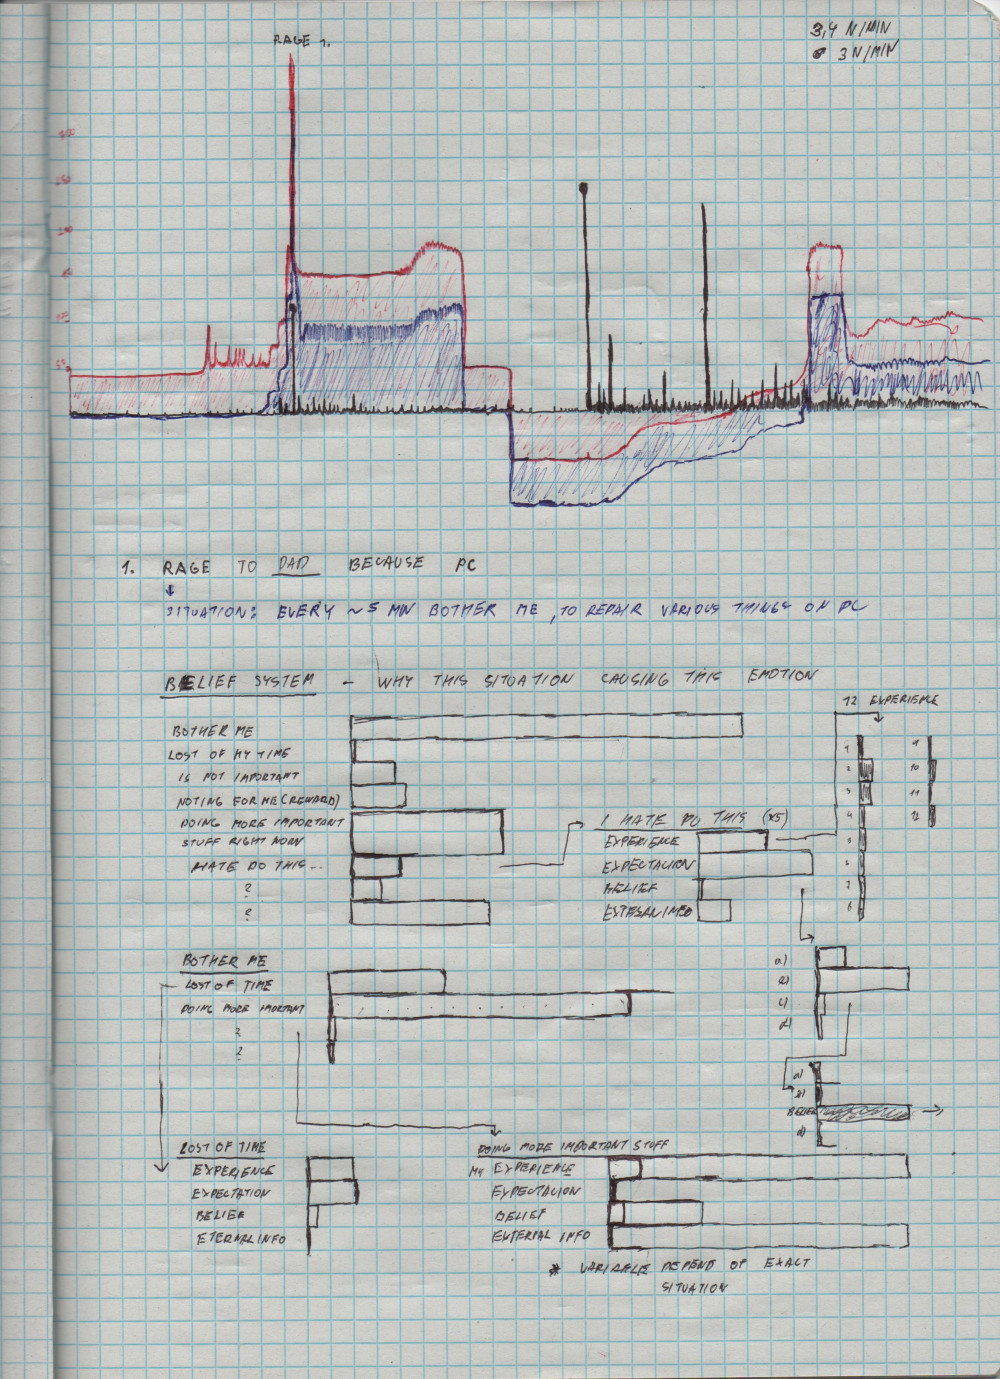 RAGE 1.
3,4 N/MIN
3 N/MIN
300
250
200
100
50
1. RAGE TO DAD BECAUSE PC
SITUATION: EVERY ~5 MIN BOTHER ME, TO REPAIR VARIOUS THINGS ON PC
BELIEF SYSTEM - WHY THIS SITUATION CAUSING THIS EMOTION
12 EXPERIENCE
BOTHER ME
LOST OF MY TIME
IS NOT IMPORTANT
NOTING FOR ME (REWARD)
DOING MORE IMPORTANT
STUFF RIGHT NOW
HATE DO THIS...
?
?
I HATE DO THIS (x5)
EXPERIENCE
EXPECTACION
BELIEF
1
2
3
4
5
6
7
8
9
10
11
12
BOTHER ME
LOST OF TIME
DOING MORE IMORTANT
?
?
a)
b)
c)
d)
a)
b)
BELIEF
d)
LOST OF TIME
EXPERIENCE
EXPECTATION
BELIEF
ETERNAL INFO
DOING MORE IMPORTANT STUFF
MY EXPERIENCE
EXPECTACION
BELIEF
EXTERNAL INFO
* VARIABLE DEPEND OF EXACT
SITUATION